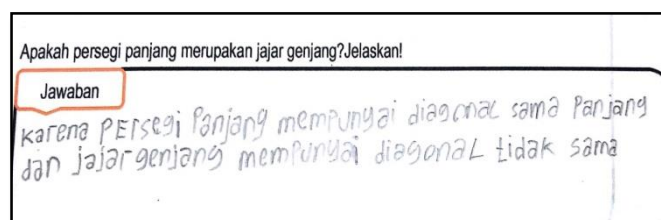 Apakah persegi panjang merupakan jajar genjang?Jelaskan!
Jawaban
Karena PErsegi Panjang mempunyai diagonal sama Panjang
dan jajargenjang mempunyai diagonaL tidak sama